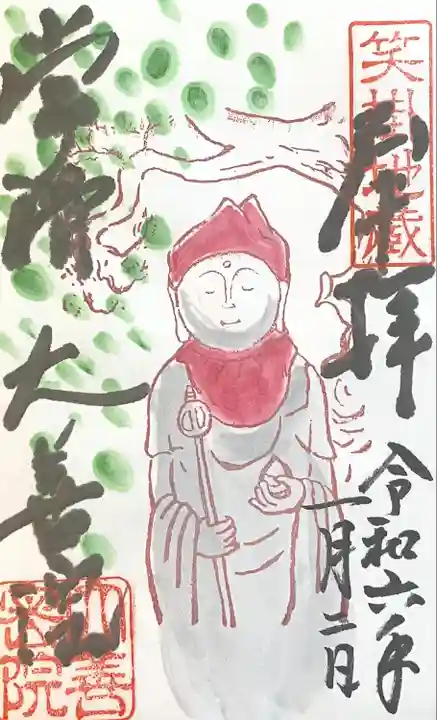 笑掛地蔵
奉拝
令和六年
一月二日
常滑 大善院
善
院